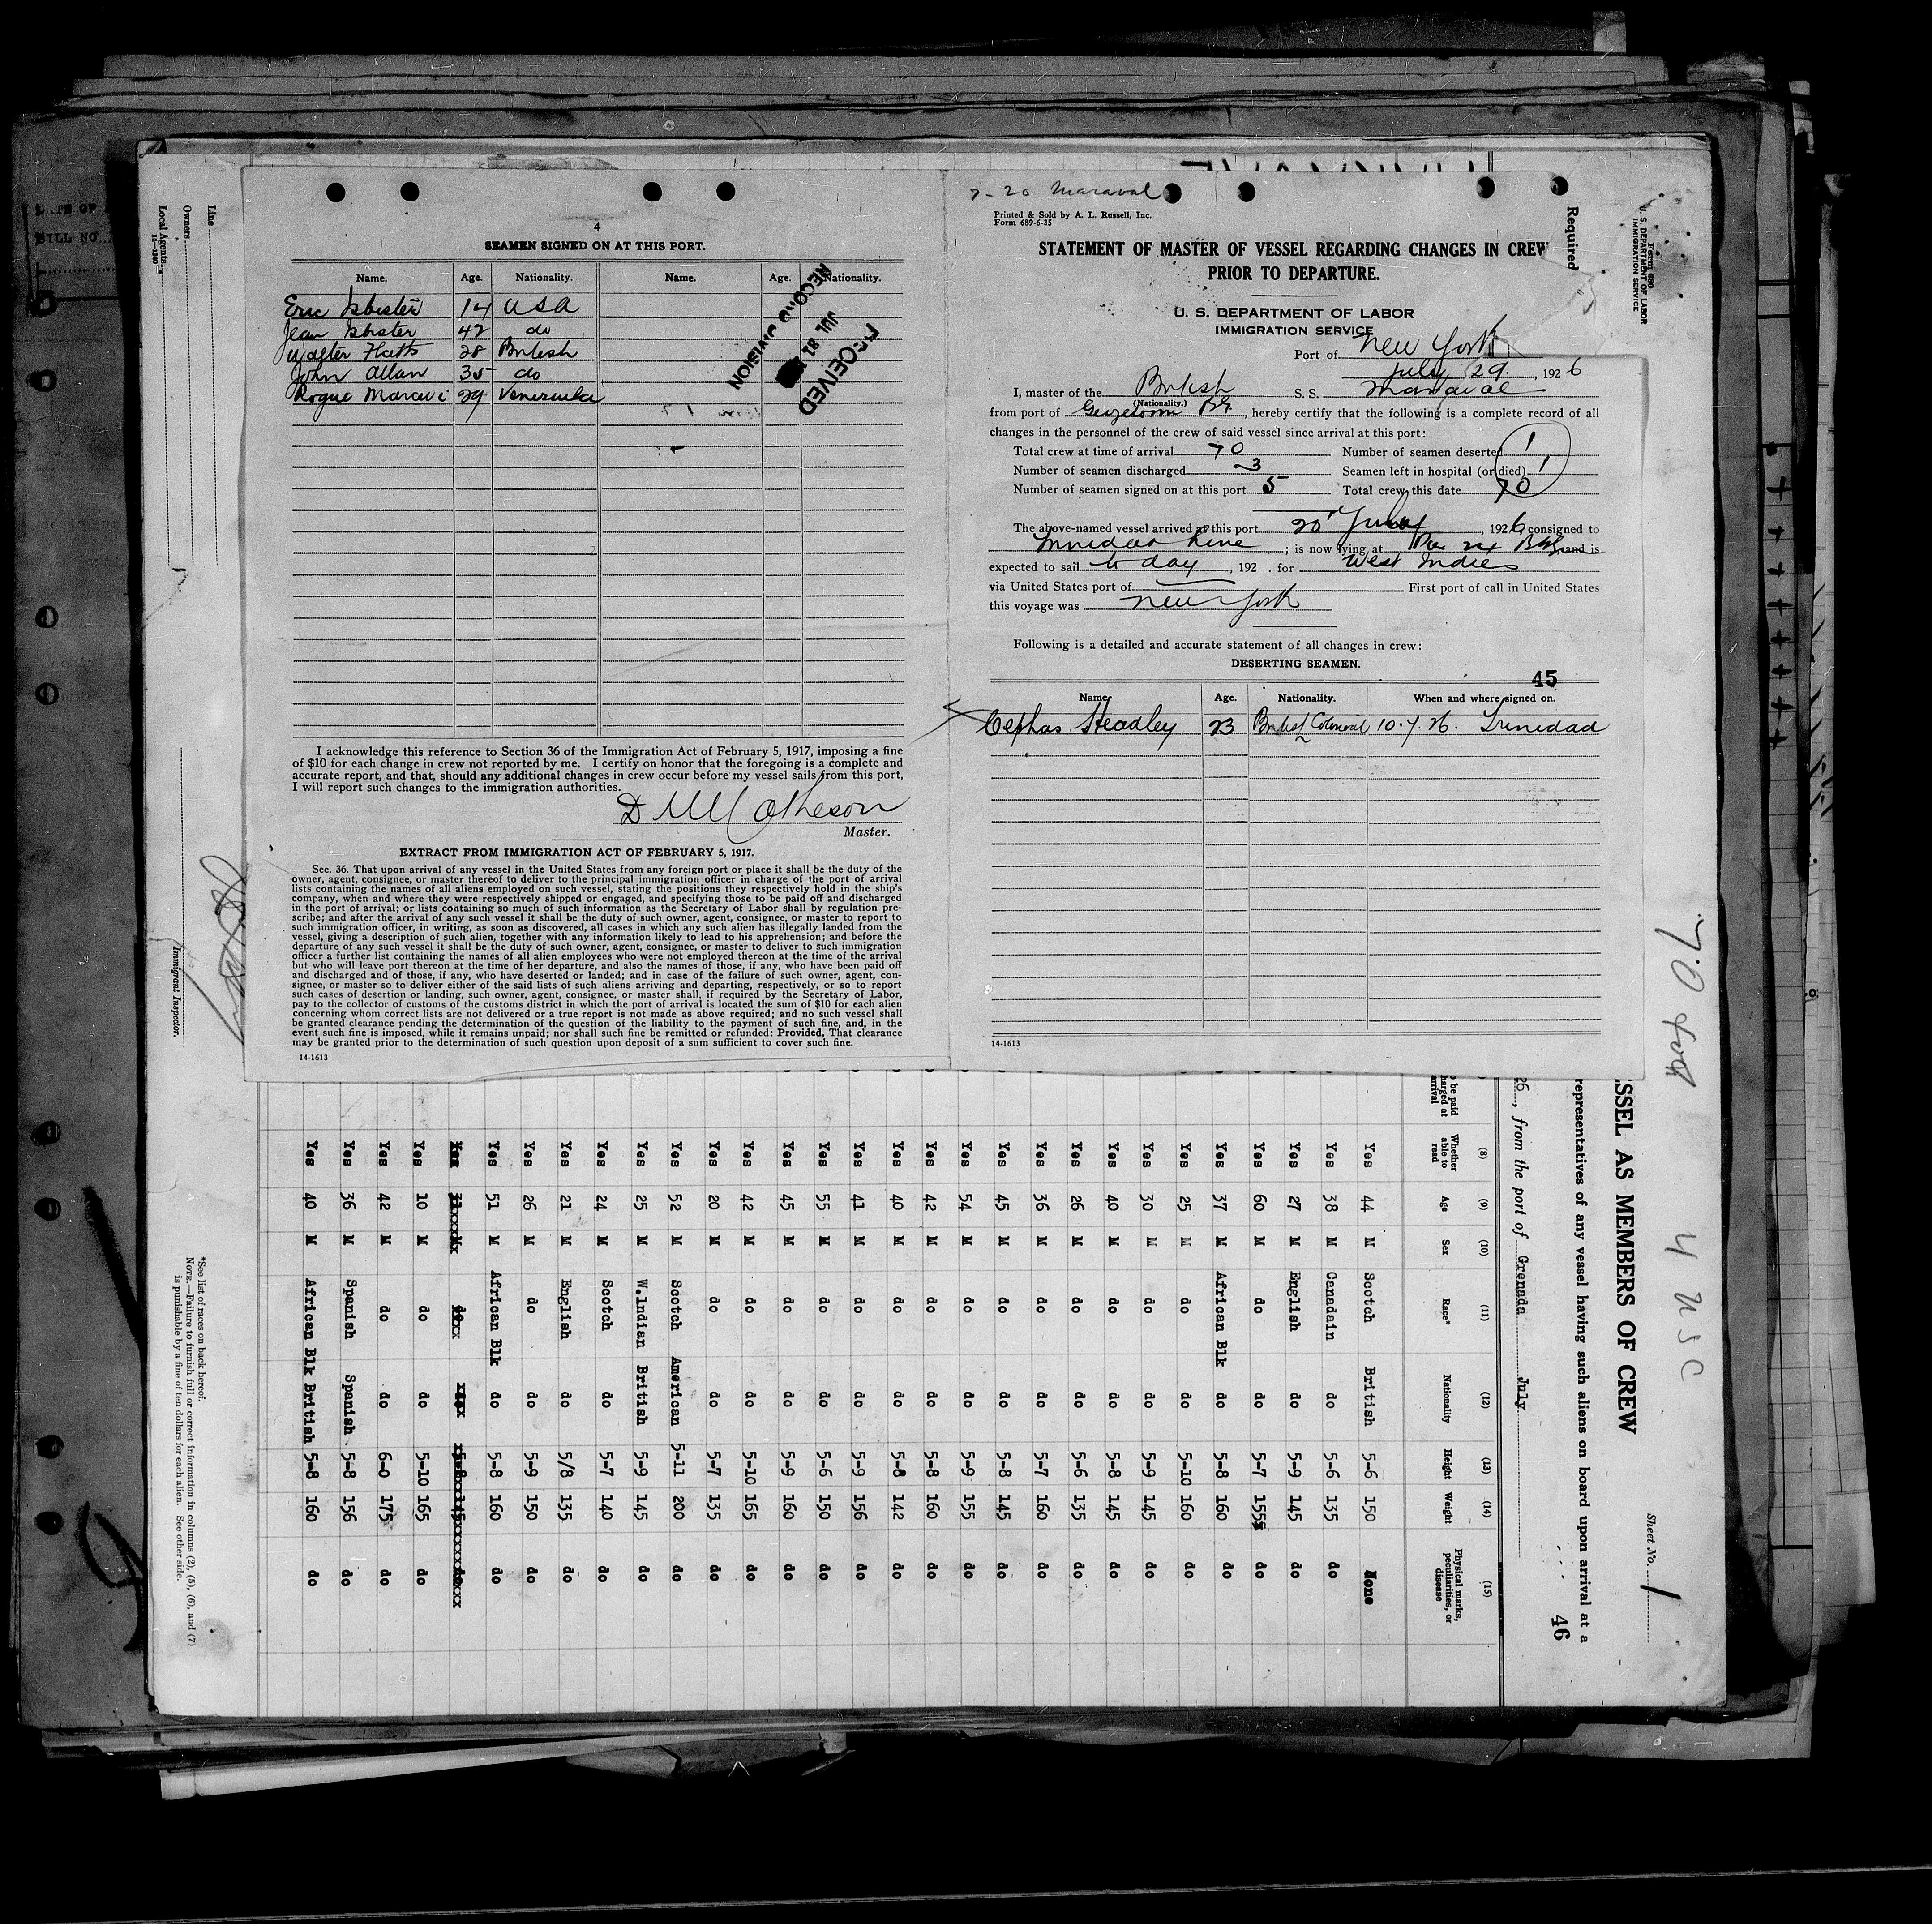 4
SEAMEN SIGNED ON AT THIS PORT.
Name. Age. Nationality. Name. Age. Nationality.
Eric Isbister 14 USA
Jean Isbister 42 do
Walter 28 British
John Allan 35 do
29 Venezuela
SECOND DIVISION
JUL 31
RECEIVED
I acknowledge this reference to Section 36 of the Immigration Act of February 5, 1917, imposing a fine
of $10 for each change in crew not reported by me. I certify on honor that the foregoing is a complete and
accurate report, and that, should any additional changes in crew occur before my vessel sails from this port,
I will report such changes to the immigration authorities.
Master.
EXTRACT FROM IMMIGRATION ACT OF FEBRUARY 5, 1917.
Sec. 36. That upon arrival of any vessel in the United States from any foreign port or place it shall be the duty of the
owner, agent, consignee, or master thereof to deliver to the principal immigration officer in charge of the port of arrival
lists containing the names of all aliens employed on such vessel, stating the positions they respectively hold in the ship's
company, when and where they were respectively shipped or engaged, and specifying those to be paid off and discharged
in the port of arrival; or lists containing so much of such information as the Secretary of Labor shall by regulation pre-
scribe; and after the arrival of any such vessel it shall be the duty of such owner, agent, consignee, or master to report to
such immigration officer, in writing, as soon as discovered, all cases in which any such alien has illegally landed from the
vessel, giving a description of such alien, together with any information likely to lead to his apprehension; and before the
departure of any such vessel it shall be the duty of such owner, agent, consignee, or master to deliver to such immigration
officer a further list containing the names of all alien employees who were not employed thereon at the time of the arrival
but who will leave port thereon at the time of her departure, and also the names of those, if any, who have been paid off
and discharged and of those, if any, who have deserted or landed; and in case of the failure of such owner, agent, con-
signee, or master so to deliver either of the said lists of such aliens arriving and departing, respectively, or so to report
such cases of desertion or landing, such owner, agent, consignee, or master shall, if required by the Secretary of Labor,
pay to the collector of customs of the customs district in which the port of arrival is located the sum of $10 for each alien
concerning whom correct lists are not delivered or a true report is not made as above required; and no such vessel shall
be granted clearance pending the determination of the question of the liability to the payment of such fine, and, in the
event such fine is imposed, while it remains unpaid; nor shall such fine be remitted or refunded: Provided, That clearance
may be granted prior to the determination of such question upon deposit of a sum sufficient to cover such fine.
14-1613
7-20 Maraval
Printed & Sold by A. L. Russell, Inc.
Form 689-6-25
STATEMENT OF MASTER OF VESSEL REGARDING CHANGES IN CREW
PRIOR TO DEPARTURE.
U. S. DEPARTMENT OF LABOR
IMMIGRATION SERVICE
Port of New York
July 29, 1926
I, master of the British S. S. Maraval
(Nationality.)
from port of Georgetown BG., hereby certify that the following is a complete record of all
changes in the personnel of the crew of said vessel since arrival at this port:
Total crew at time of arrival 70 Number of seamen deserted 1
Number of seamen discharged 3 Seamen left in hospital (or died) 1
Number of seamen signed on at this port 5 Total crew this date 70
The above-named vessel arrived at this port 20 July, 1926 consigned to
Trinidad Line; is now lying at Pier 24 and is
expected to sail to day, 192 . for West Indies
via United States port of First port of call in United States
this voyage was New York
Following is a detailed and accurate statement of all changes in crew:
DESERTING SEAMEN.
45
Name Age. Nationality. When and where signed on.
Cephas Headley 23 British Colonial 10.7.26. Trinidad
14-1613
Required
Form 689
U. S. DEPARTMENT OF LABOR
IMMIGRATION SERVICE
Line
Owners
Local Agents
14-1240
Immigrant Inspector.
70
4 USC
Sheet No. 1
SSEL AS MEMBERS OF CREW
representatives of any vessel having such aliens on board upon arrival at a
46
26, from the port of Grenada July
(8) (9) (10) (11) (12) (13) (14) (15)
o be paid harged at arrival Whether able to read Age Sex Race* Nationality Height Weight Physical marks, peculiarities, or disease
Yes 44 M Scotch British 5-6 150 None
Yes 38 M Canadain do 5-6 135 do
Yes 27 M English do 5-9 145 do
Yes 60 M do do 5-7 155 do
Yes 37 M African Blk do 5-8 160 do
Yes 25 M do do 5-10 160 do
Yes 30 M do do 5-9 145 do
Yes 40 M do do 5-8 145 do
Yes 26 M do do 5-6 135 do
Yes 36 M do do 5-7 160 do
Yes 45 M do do 5-8 145 do
Yes 54 M do do 5-9 155 do
Yes 42 M do do 5-8 160 do
Yes 40 M do do 5-8 142 do
Yes 41 M do do 5-9 156 do
Yes 55 M do do 5-6 150 do
Yes 45 M do do 5-9 160 do
Yes 42 M do do 5-10 165 do
Yes 20 M do do 5-7 135 do
Yes 52 M Scotch American 5-11 200 do
Yes 25 M W.Indian British 5-9 145 do
Yes 24 M Scotch do 5-7 140 do
Yes 21 M English do 5/8 135 do
Yes 26 M do do 5-9 150 do
Yes 51 M African Blk do 5-8 160 do
Yes 10 M do do 5-10 165 do
Yes 42 M do do 6-0 175 do
Yes 36 M Spanish Spanish 5-8 156 do
Yes 40 M African Blk British 5-8 160 do
*See list of races on back hereof.
NOTE.—Failure to furnish full or correct information in columns (2), (5), (6), and (7)
is punishable by a fine of ten dollars for each alien. See other side.
BILL NO.